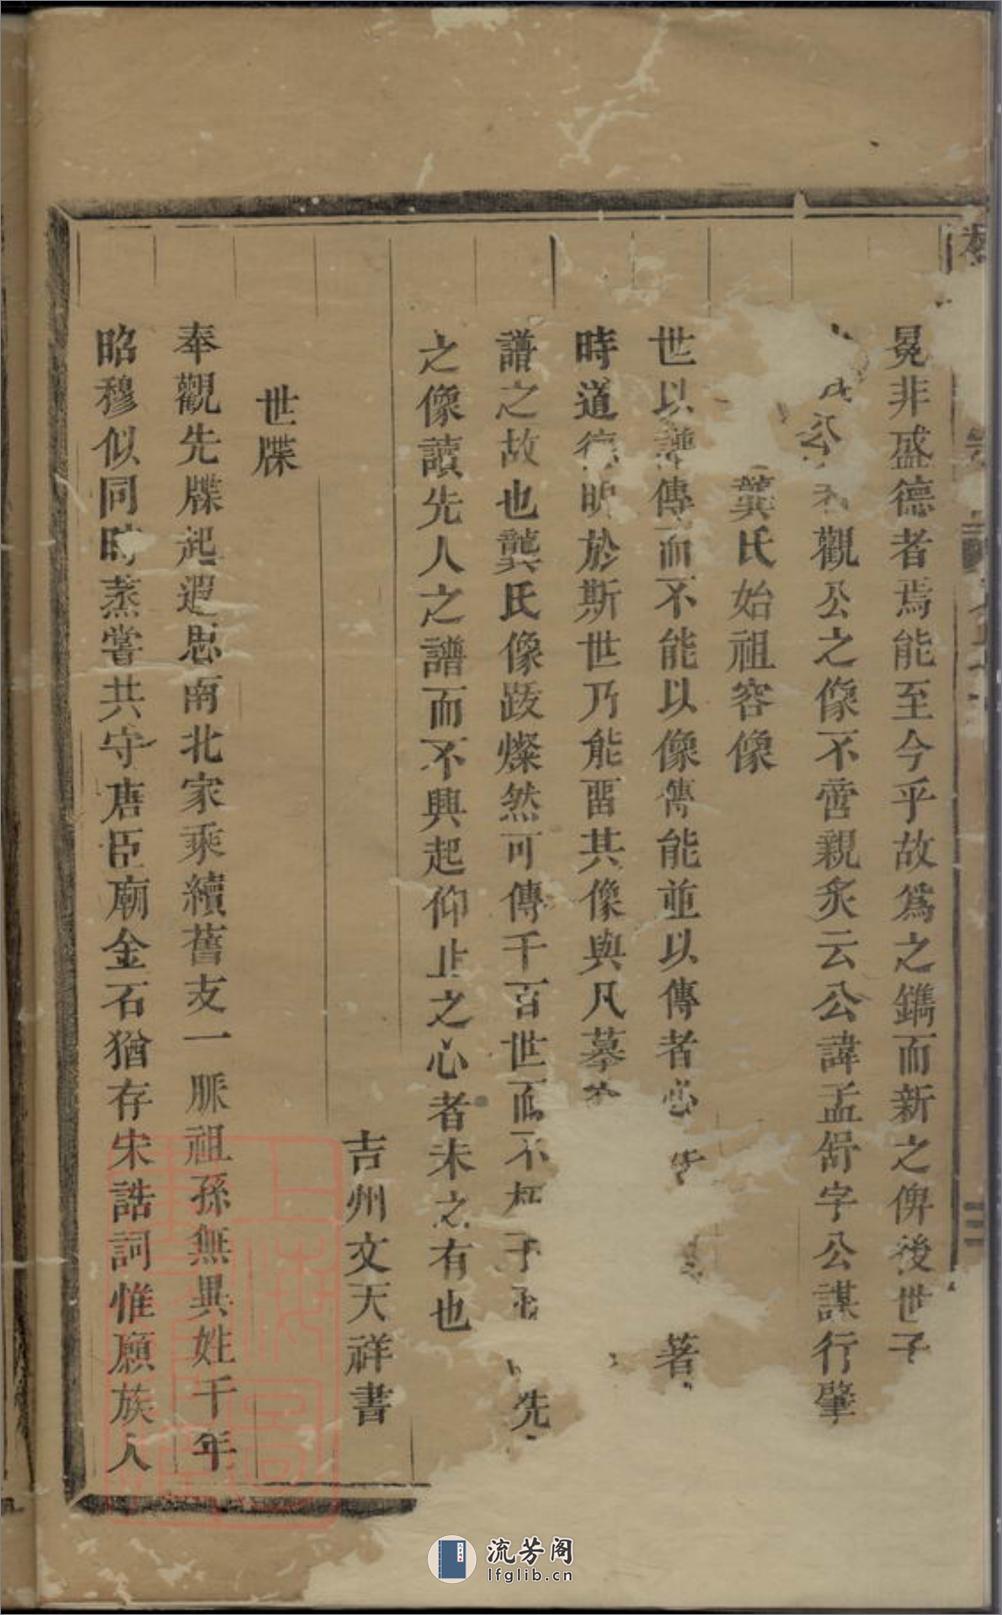 冕非盛德者焉能至今乎故爲之鐫而新之俾後世子
公觀公之像不啻親炙云公諱孟舒字公謀行肇
龔氏始祖容像
世以譜傳而不能以像傳能並以傳者必 著
時道德昭於斯世乃能畱其像與凡墓
譜之故也龔氏像跋燦然可傳千百世而不朽子 先
之像讀先人之譜而不興起仰止之心者未之有也
吉州文天祥書
世牒
奉觀先牒起遐思南北家乘續舊支一脈祖孫無異姓千年
昭穆似同時蒸嘗共守唐臣廟金石猶存宋誥詞惟願族人
流芳阁
lfglib.cn